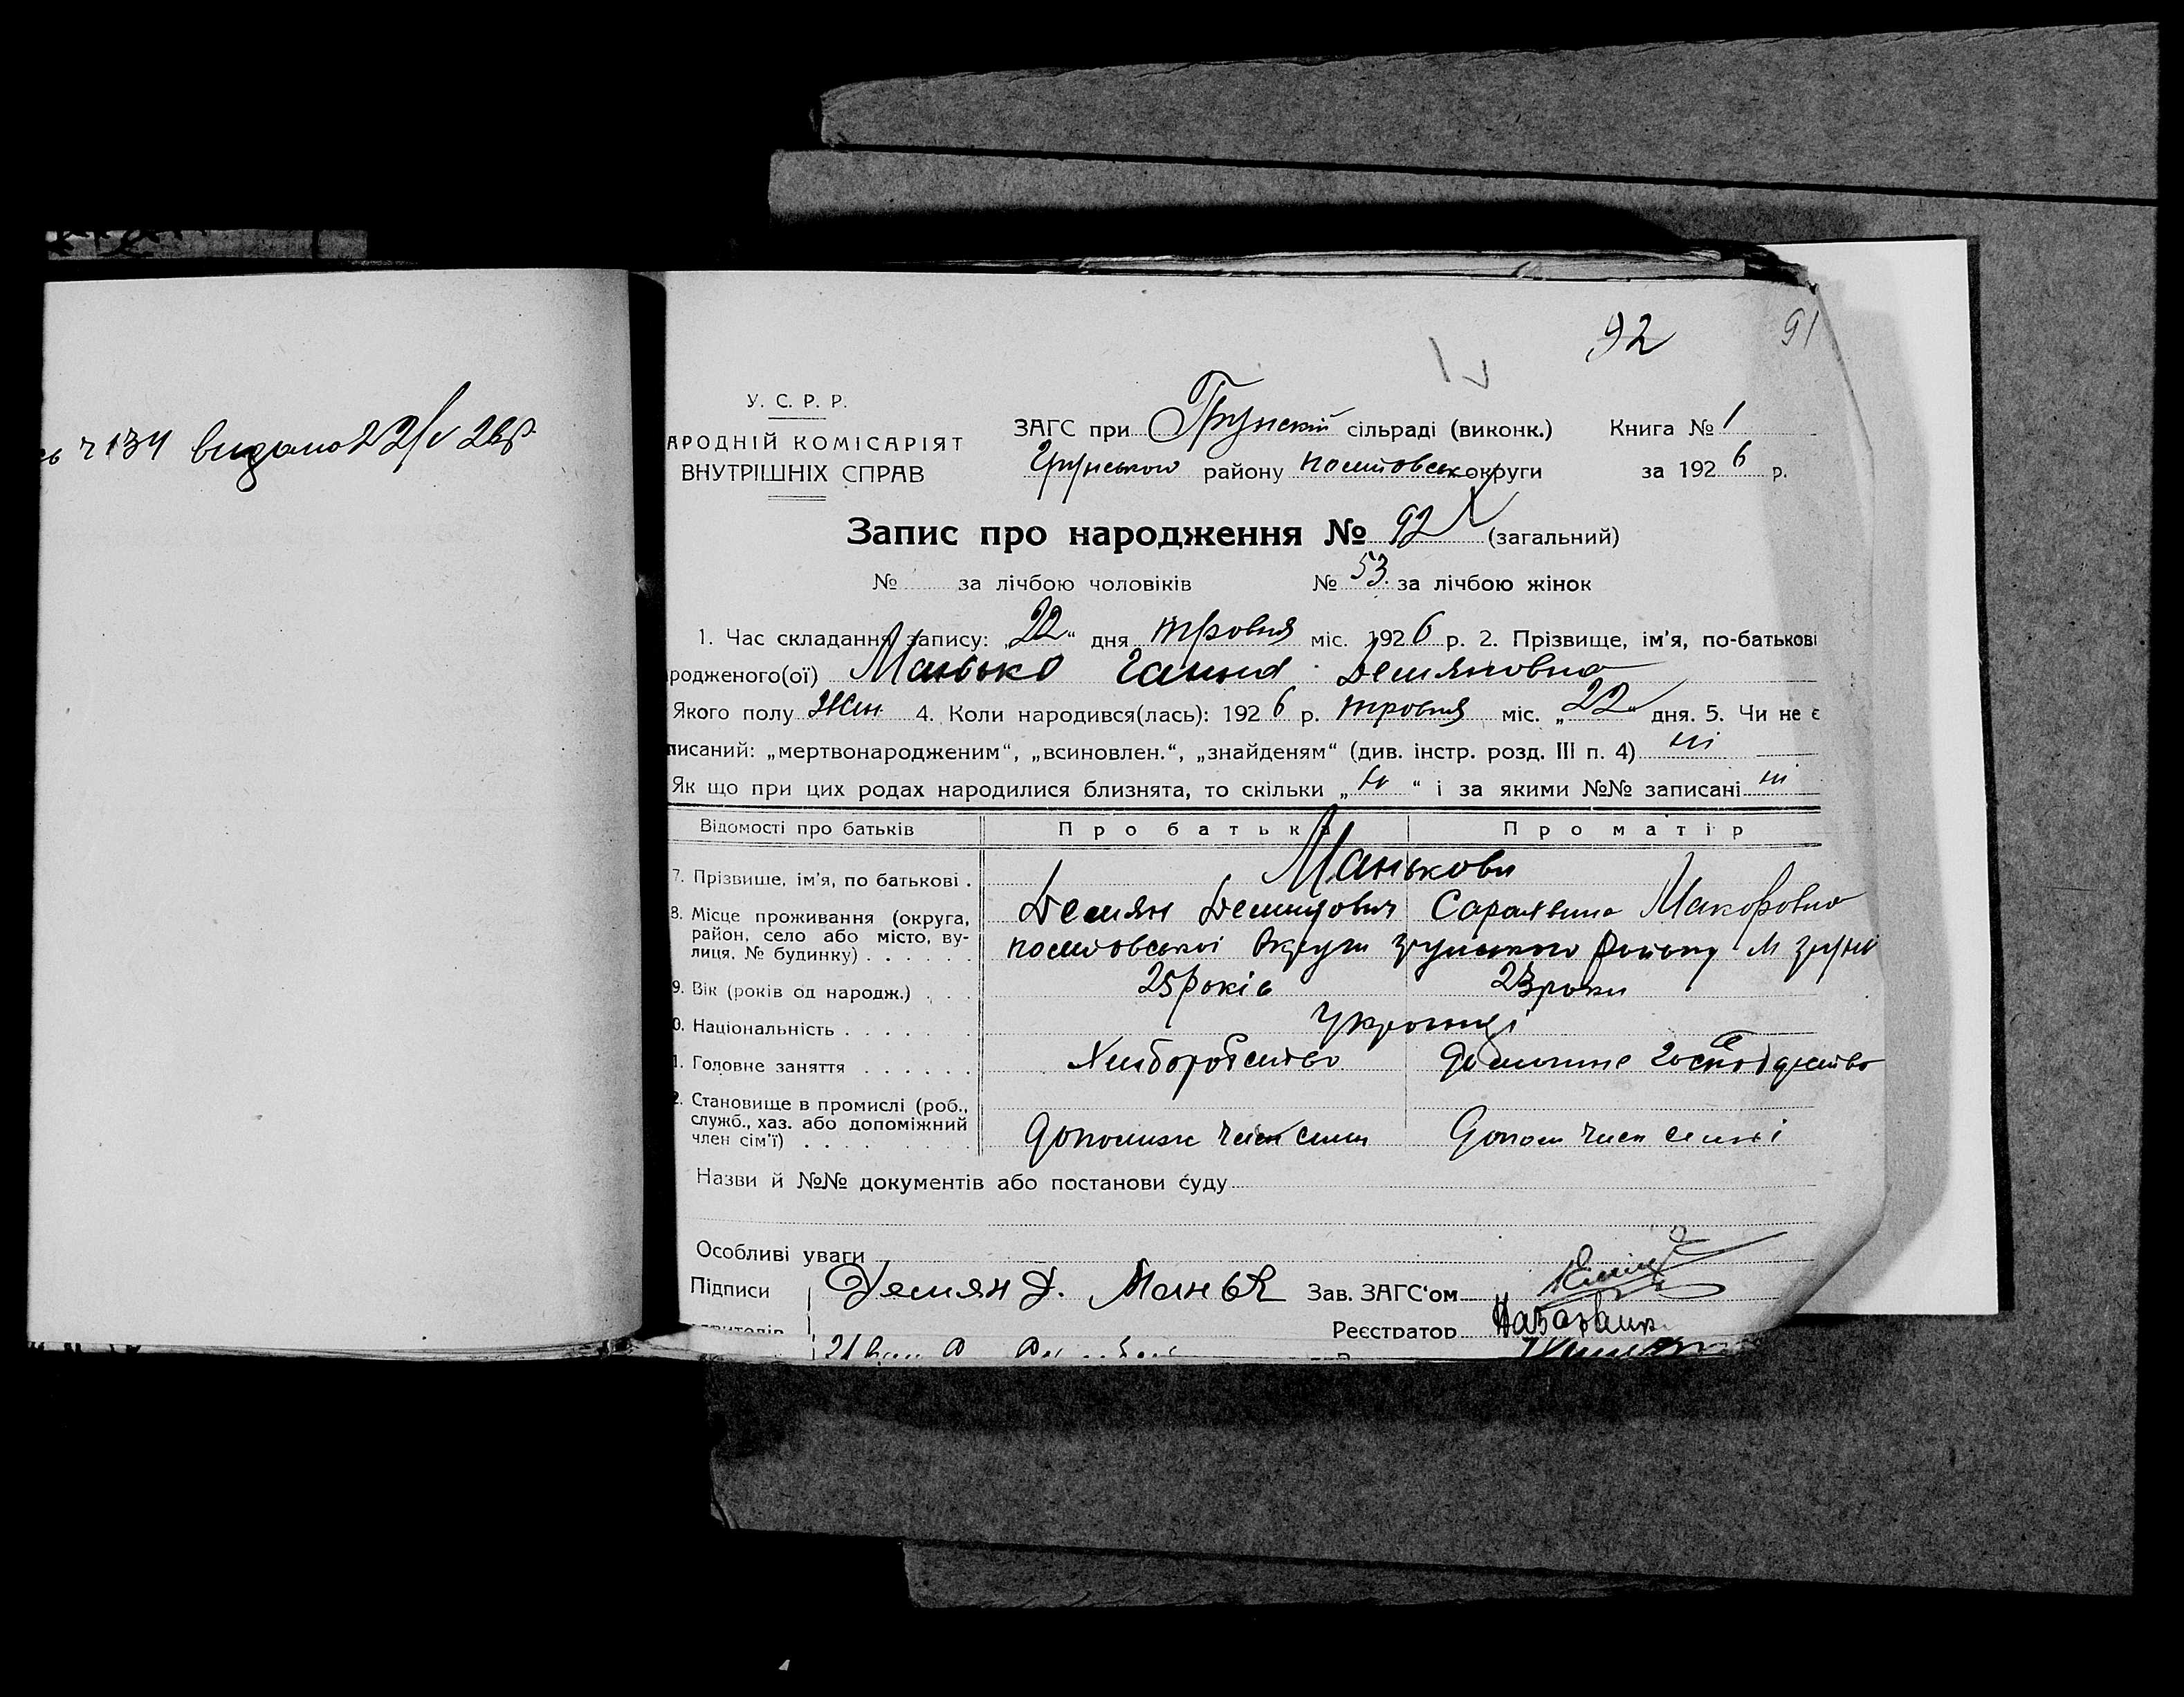 ч 134 видано 22/V 26р.
92 91
У. С. Р. Р.
АРОДНІЙ КОМІСАРІЯТ
ВНУТРІШНІХ СПРАВ
ЗАГС при Грунскій сільраді (виконк.) Книга № 1
Грунського району округи за 1926 р.
Запис про народження № 92 (загальний)
№ за лічбою чоловіків № 53. за лічбою жінок
1. Час складання запису: „22“ дня травня міс. 1926 р. 2. Прізвище, ім'я, по-батькові
родженого(ої) Манько Ганна Демяновна
Якого полу Жін 4. Коли народився(лась): 1926 р. травня міс. „22“ дня. 5. Чи не є
писаний: „мертвонародженим“, „всиновлен.“, „знайденям“ (див. інстр. розд. III п. 4) ні
Як що при цих родах народилися близнята, то скільки „ні“ і за якими №№ записані ні
Відомості про батьків Про батька Про матір
7. Прізвище, ім'я, по батькові . Манькови
Демян Демидович Макаровна
8. Місце проживання (округа, район, село або місто, вулиця, № будинку) . . . . . . округи грунського району М Груні
9. Вік (років од народж.) . . . 25 років 23 роки
0. Національність . . . . . . Українці
1. Головне заняття . . . . . . Хлиборобство домашне господарство
2. Становище в промислі (роб.,
служб., хаз. або допоміжний
член сім'ї) . . . . . допомиж член симі Допом член симні
Назви й №№ документів або постанови суду
Особливі уваги
Підписи Демян Д. Манько Зав. ЗАГС'ом
Реєстратор